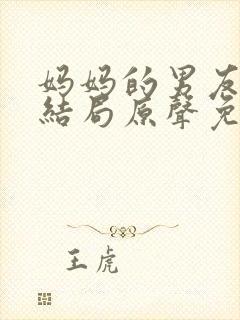 妈妈的男友
結局原聲免
王虎